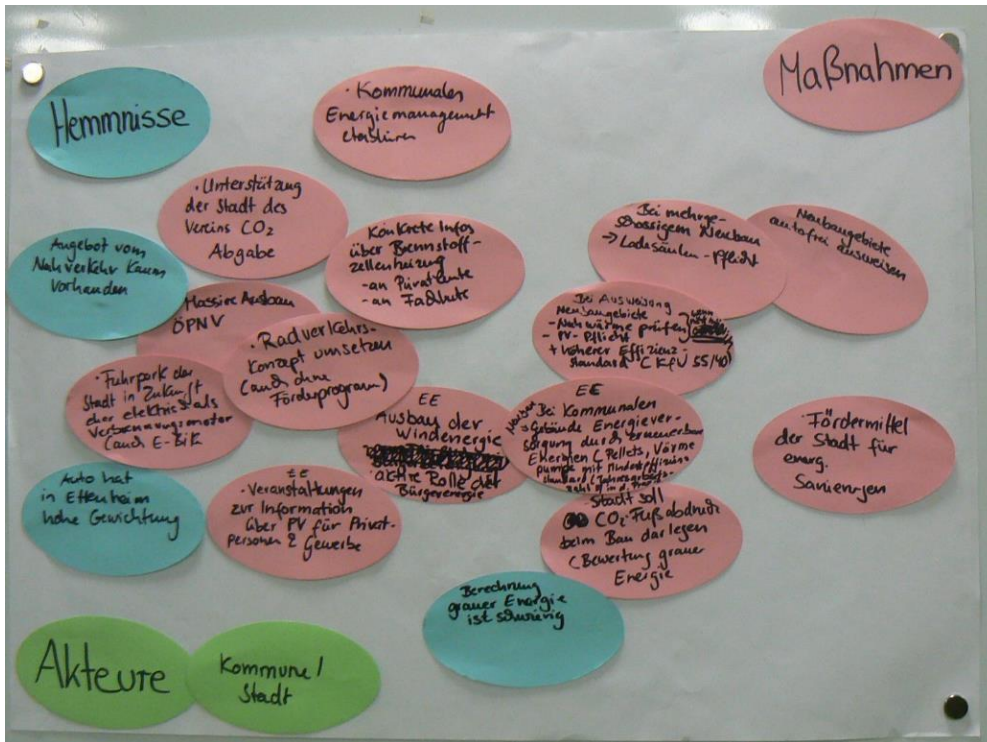 Maßnahmen
Hemmnisse
· Kommunales
Energiemanagement
etablieren
· Unterstützung
der Stadt des
Vereins CO2
Abgabe
Konkrete Infos
über Brennstoff-
zellenheizung
- an Privatleute
- an Fachleute
Bei mehrge-
schossigem Neubau
→ Ladesäulen-Pflicht
Neubaugebiete
autofrei ausweisen
Angebot vom
Nahverkehr kaum
vorhanden
Massive Ausbau
ÖPNV
· Radverkehrs-
konzept umsetzen
(auch ohne
Förderprogram)
Bei Ausweisung
Neubaugebiete
- Nahwärme prüfen
- PV-Pflicht
+ höherer Effizienz-
standard (KfW 55/40)
· Fuhrpark der
Stadt in Zukunft
eher elektrisch als
Verbrennungsmotor
(auch E-Bik
EE
Ausbau der
Windenergie
active Rolle der
Bürgerenergie
EE
Bei Kommunalen
Gebäude Energiever-
sorgung durch erneuerbare
Energien (Pellets, Wärme
pumpe mit Mindesteffizienz
standard (Jahresarbeits-
· Fördermittel
der Stadt für
energ.
Sanierungen
Auto hat
in Ettenheim
hohe Gewichtung
EE
· Veranstaltungen
zur Information
über PV für Privat-
personen & Gewerbe
Stadt soll
CO2-Fußabdruck
beim Bau darlegen
(Bewertung grauer
Energie
Berechnung
grauer Energie
ist schwierig
Akteure
Kommune/
Stadt